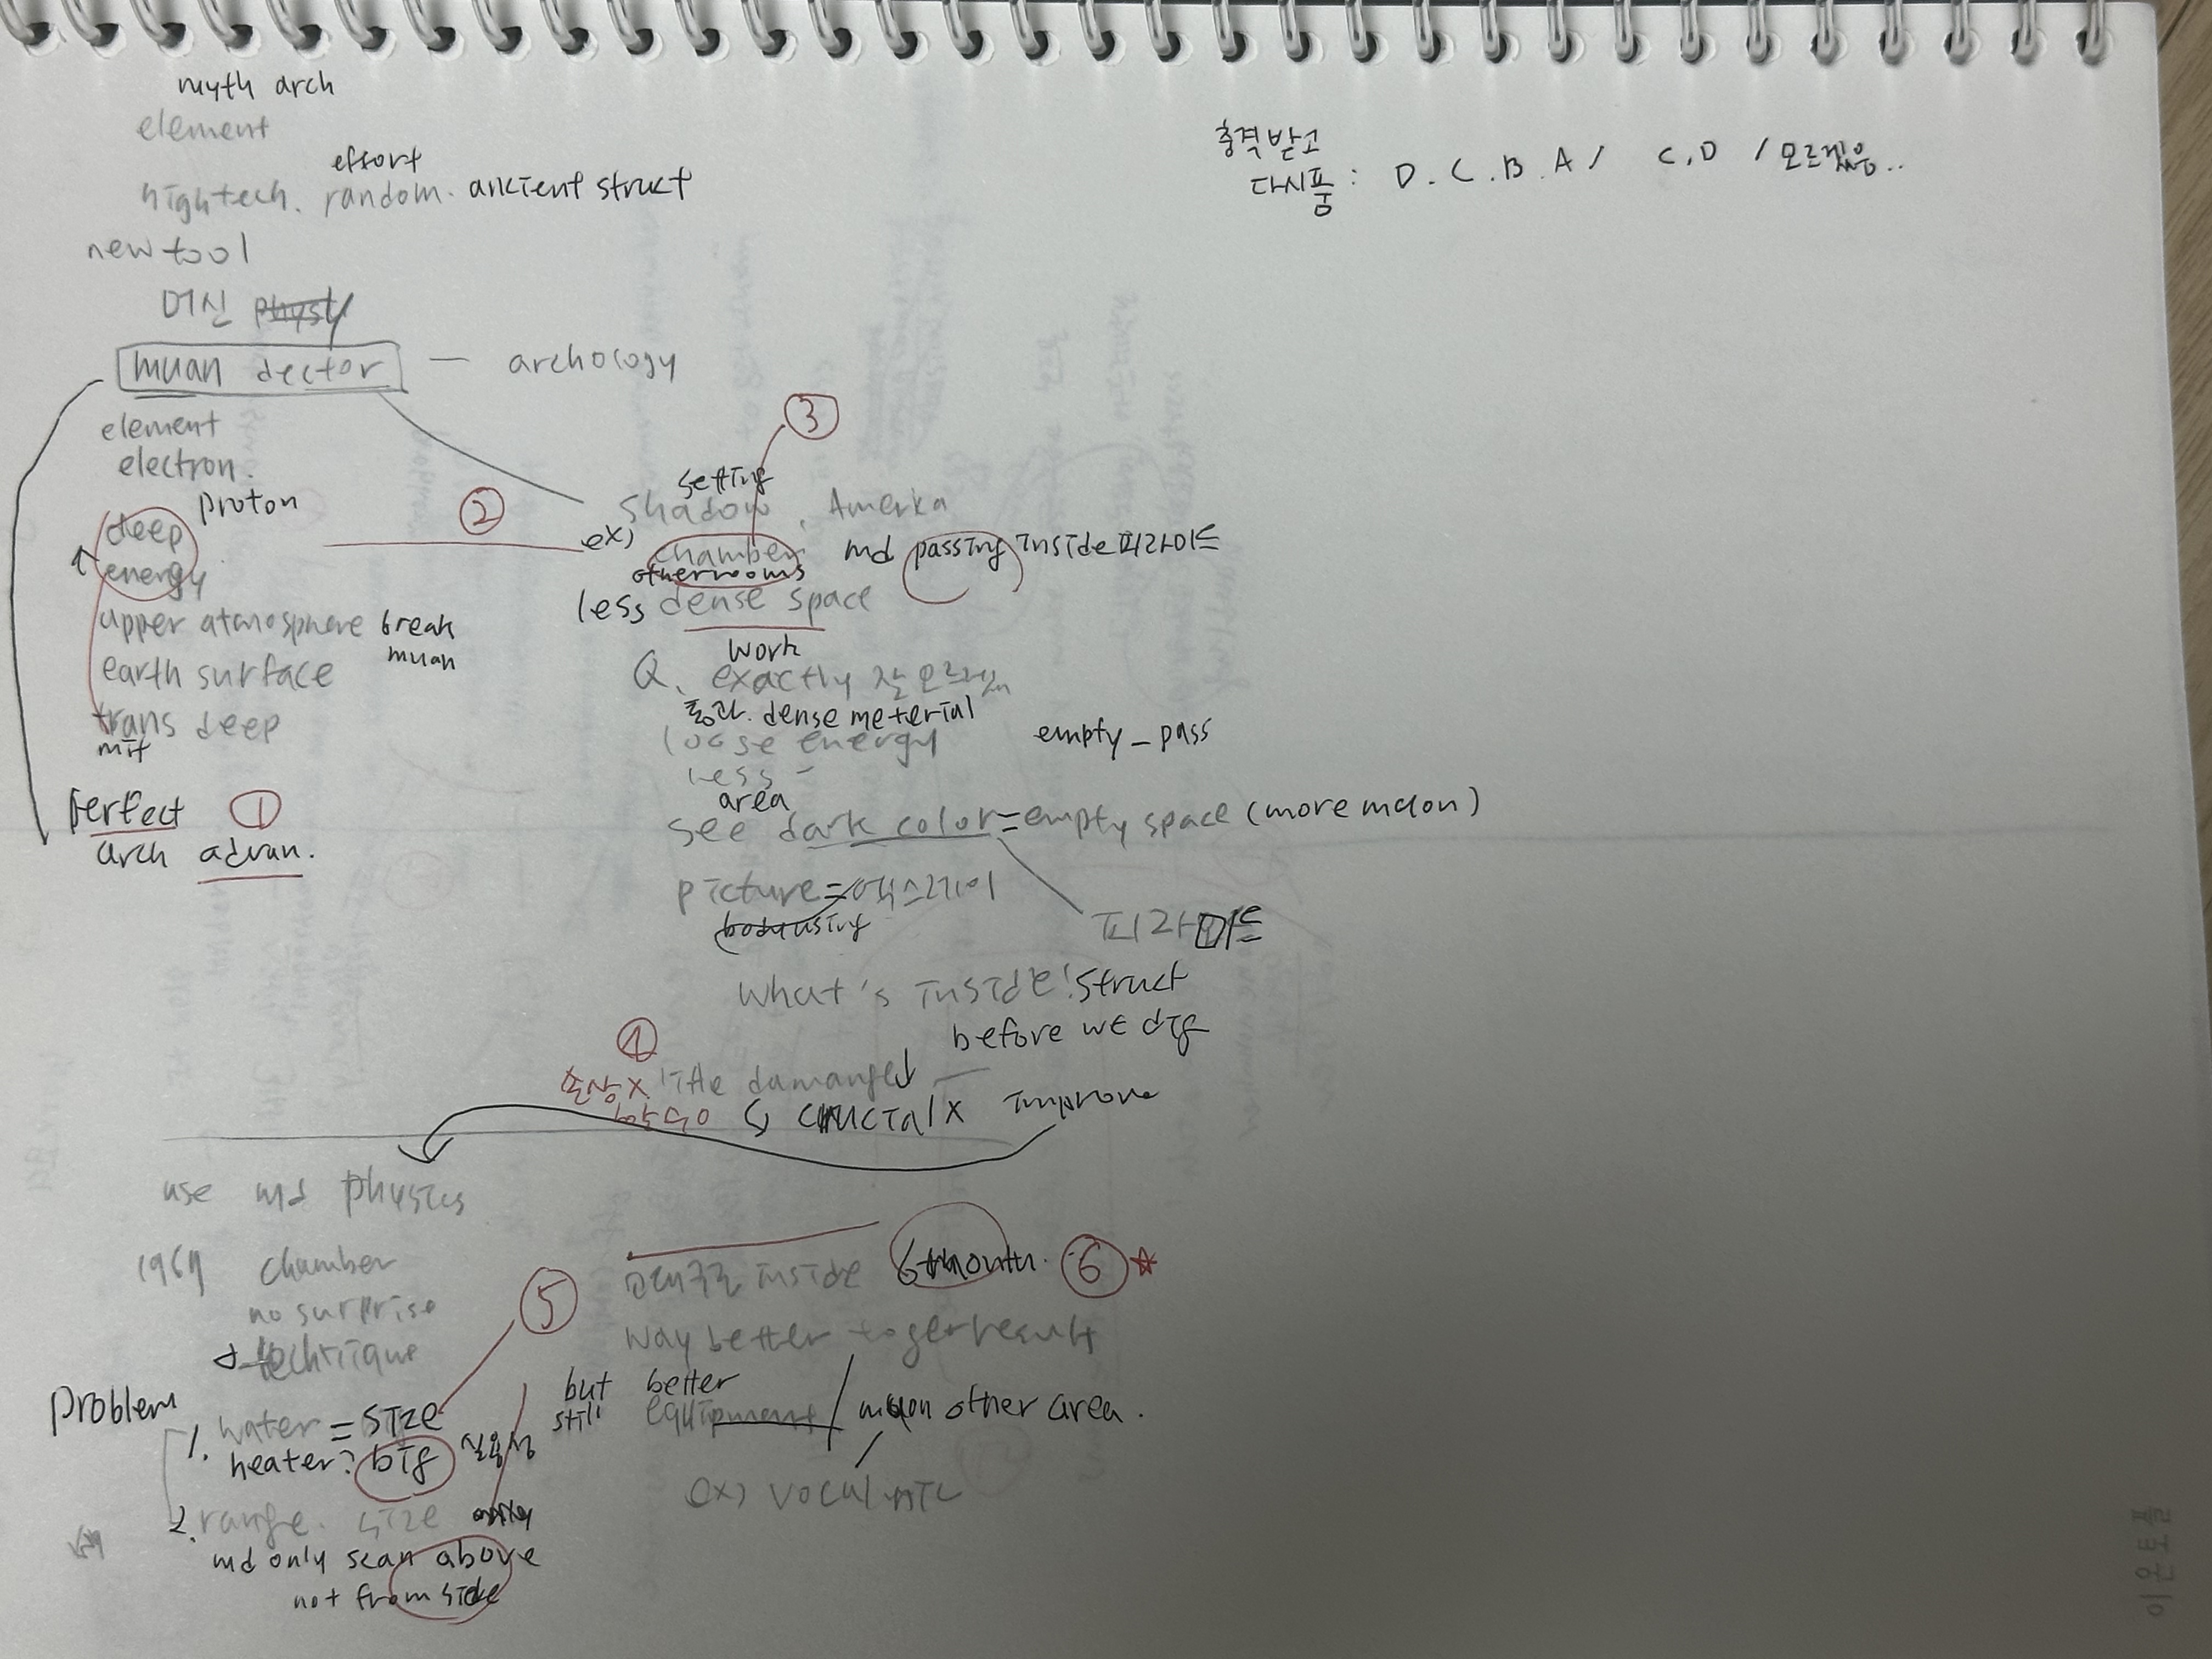 myth arch
element
effort
hightech. random. ancient struct
new tool
머신 physly
muan dector — archology
element
electron.
proton
deep
energy
upper atmosphere break
muan
earth surface
trans deep
mit
perfect ①
arch advan.
②
③
setting
shadow, Amerka
ex) chamber md passing inside 피라미드
other rooms
less dense space
work
Q. exactly 잘 모르겠
통과. dense meterial
loose energy empty - pass
less -
area
see dark color = empty space (more muon)
picture = 엑스레이
피라미드
what's inside! struct
before we dig
④
손상X little damange↓
crucial X improve
use md physics
196 chamber
no surprise
technique
problem
1. water = size
heater? big 실용성
2. range. size
md only scan above
not from side
⑤
inside 6 month. ⑥ ☆
way better to get result
but better
still equipment / muon other area.
ex)
충격받고
다시품 : D. C. B. A / C, D / 모르겠음..